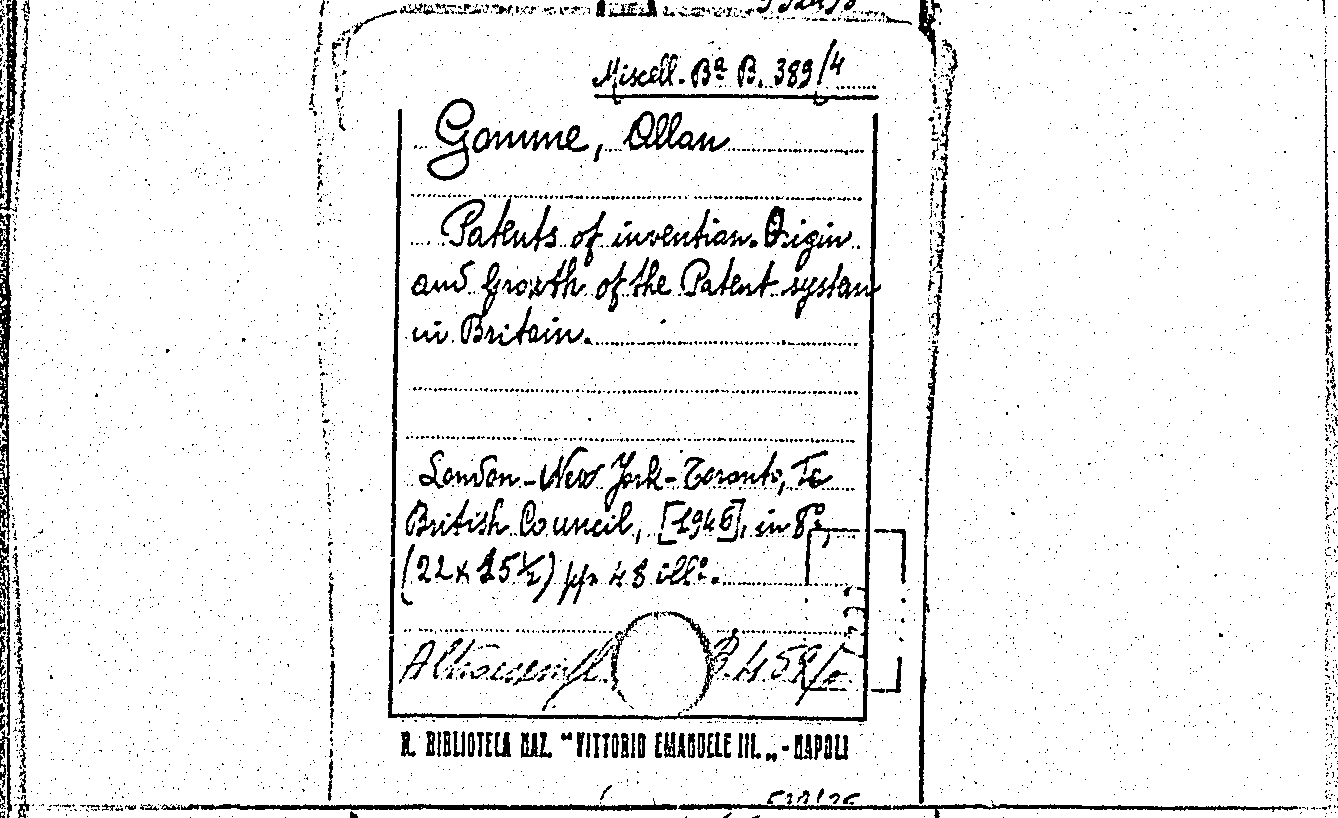 Miscell. Bª B. 389/4
Gomme, Allan
Patents of invention. Origin
and Growth of the Patent system
in Britain.
London - New York - Toronto, Te
British Council, [1946], in 8º,
(22 x 15½) pp. 48 ill.
R. BIBLIOTECA NAZ. "VITTORIO EMANUELE III. „ - NAPOLI